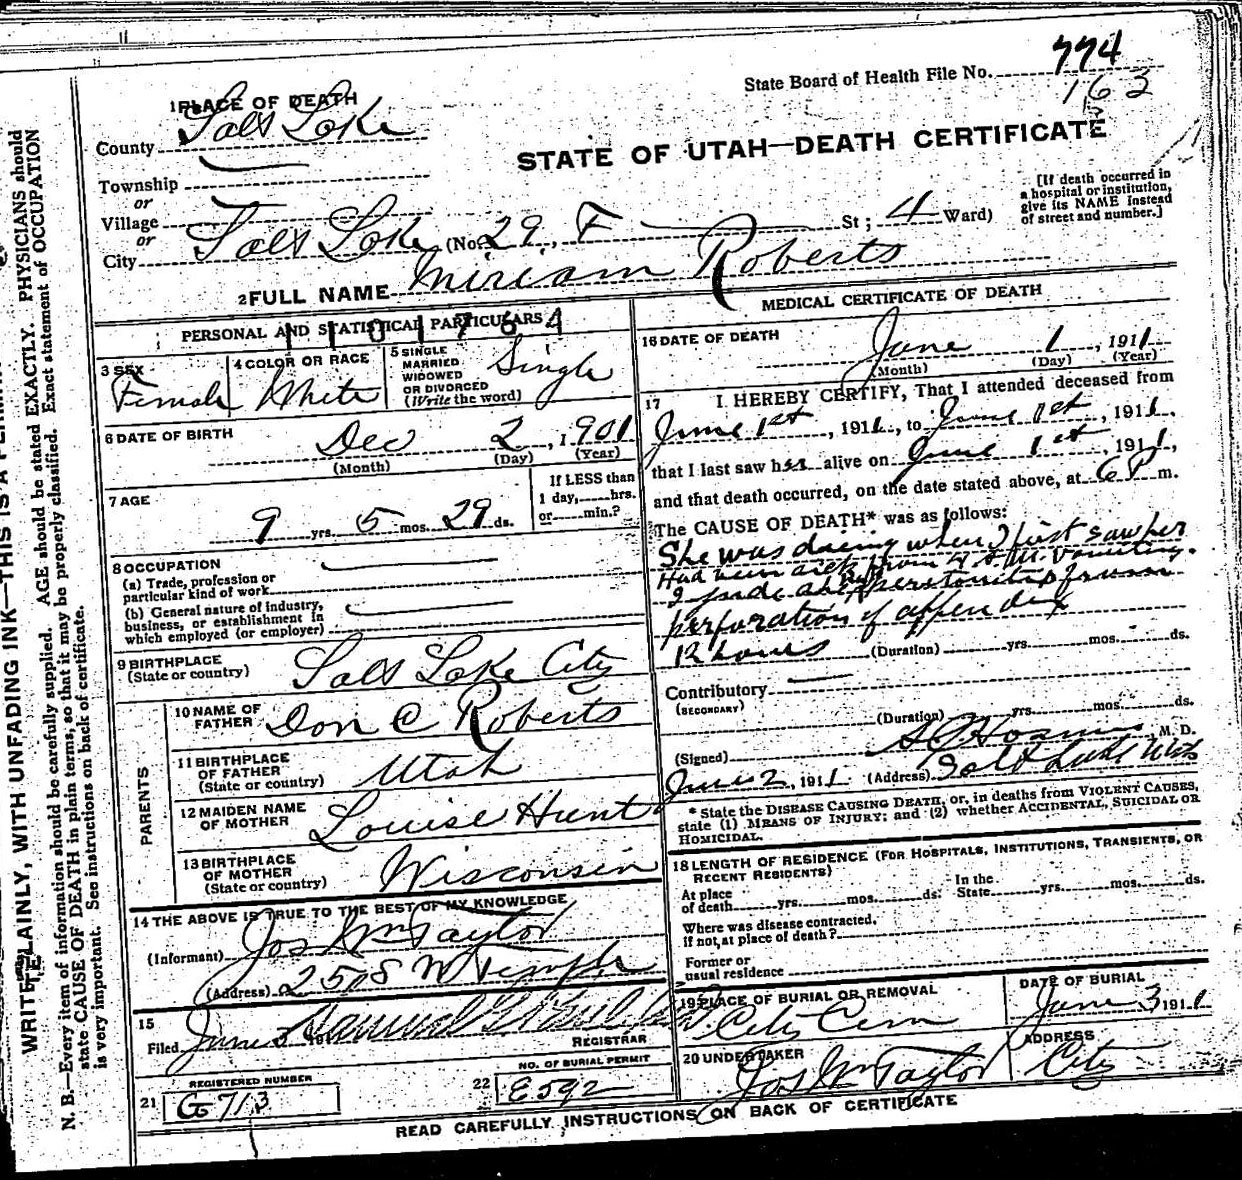 State Board of Health File No. 774
163
1 PLACE OF DEATH
County Salt Lake
STATE OF UTAH—DEATH CERTIFICATE
Township
or
Village
or
City Salt Lake (No. 29, F St; 4 Ward)
[If death occurred in
a hospital or institution,
give its NAME instead
of street and number.]
2 FULL NAME Miriam Roberts
PERSONAL AND STATISTICAL PARTICULARS
1101764
3 SEX
Female
4 COLOR OR RACE
White
5 SINGLE
MARRIED
WIDOWED
OR DIVORCED
(Write the word)
Single
6 DATE OF BIRTH
Dec 2, 1901
(Month) (Day) (Year)
7 AGE
9 yrs. 5 mos. 29 ds.
If LESS than
1 day, hrs.
or min.?
8 OCCUPATION
(a) Trade, profession or
particular kind of work
(b) General nature of industry,
business, or establishment in
which employed (or employer)
9 BIRTHPLACE
(State or country)
Salt Lake City
PARENTS
10 NAME OF
FATHER
Don C Roberts
11 BIRTHPLACE
OF FATHER
(State or country)
Utah
12 MAIDEN NAME
OF MOTHER
Louise Hunt
13 BIRTHPLACE
OF MOTHER
(State or country)
Wisconsin
14 THE ABOVE IS TRUE TO THE BEST OF MY KNOWLEDGE
(Informant) Jos Wm Taylor
(Address) 25 S W Temple
15
Filed June
REGISTRAR
REGISTERED NUMBER
21 G 713
NO. OF BURIAL PERMIT
22 E592
MEDICAL CERTIFICATE OF DEATH
16 DATE OF DEATH
June 1, 1911
(Month) (Day) (Year)
17 I HEREBY CERTIFY, That I attended deceased from
June 1st, 1911, to June 1st, 1911,
that I last saw her alive on June 1st, 1911,
and that death occurred, on the date stated above, at 6 P m.
The CAUSE OF DEATH* was as follows:
She was dying when I first saw her
Had been sick from 4 A.M. Vomiting.
I judge peritonitis from
perforation of appendix
12 hours (Duration) yrs. mos. ds.
Contributory
(SECONDARY)
(Duration) yrs. mos. ds.
(Signed) M. D.
June 2, 1911 (Address) Salt Lake
* State the DISEASE CAUSING DEATH, or, in deaths from VIOLENT CAUSES,
state (1) MEANS OF INJURY; and (2) whether ACCIDENTAL, SUICIDAL OR
HOMICIDAL.
18 LENGTH OF RESIDENCE (FOR HOSPITALS, INSTITUTIONS, TRANSIENTS, OR
RECENT RESIDENTS)
At place
of death yrs. mos. ds.
In the
State yrs. mos. ds.
Where was disease contracted.
if not, at place of death?
Former or
usual residence
19 PLACE OF BURIAL OR REMOVAL
City Cem
DATE OF BURIAL
June 3 1911
20 UNDERTAKER
Jos Wm Taylor
ADDRESS
City
READ CAREFULLY INSTRUCTIONS ON BACK OF CERTIFICATE
WRITE PLAINLY, WITH UNFADING INK—THIS IS A
N. B.—Every item of information should be carefully supplied. AGE should be stated EXACTLY. PHYSICIANS should
state CAUSE OF DEATH in plain terms, so that it may be properly classified. Exact statement of OCCUPATION
is very important. See instructions on back of certificate.